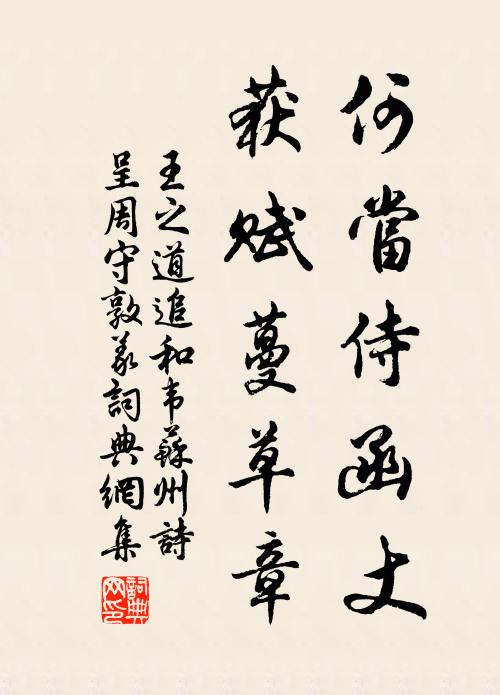 何當侍函丈
获賦蔓草章
王之道追和韦蘇州詩
呈周守敦义詞典網集
詞典网印